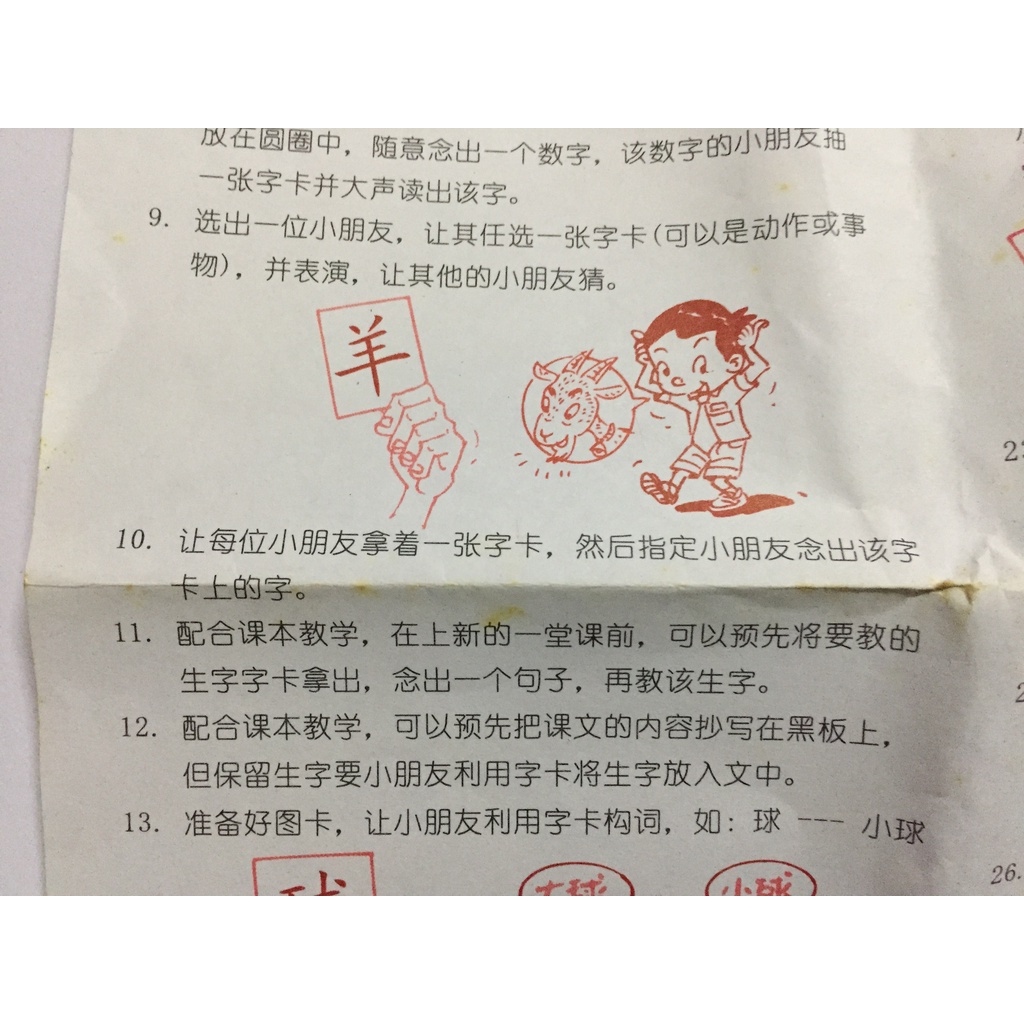 放在圆圈中，随意念出一个数字，该数字的小朋友抽
一张字卡并大声读出该字。
9. 选出一位小朋友，让其任选一张字卡(可以是动作或事
物)，并表演，让其他的小朋友猜。
羊
10. 让每位小朋友拿着一张字卡，然后指定小朋友念出该字
卡上的字。
11. 配合课本教学，在上新的一堂课前，可以预先将要教的
生字字卡拿出，念出一个句子，再教该生字。
12. 配合课本教学，可以预先把课文的内容抄写在黑板上，
但保留生字要小朋友利用字卡将生字放入文中。
13. 准备好图卡，让小朋友利用字卡构词，如：球 --- 小球
球 大球 小球
26.